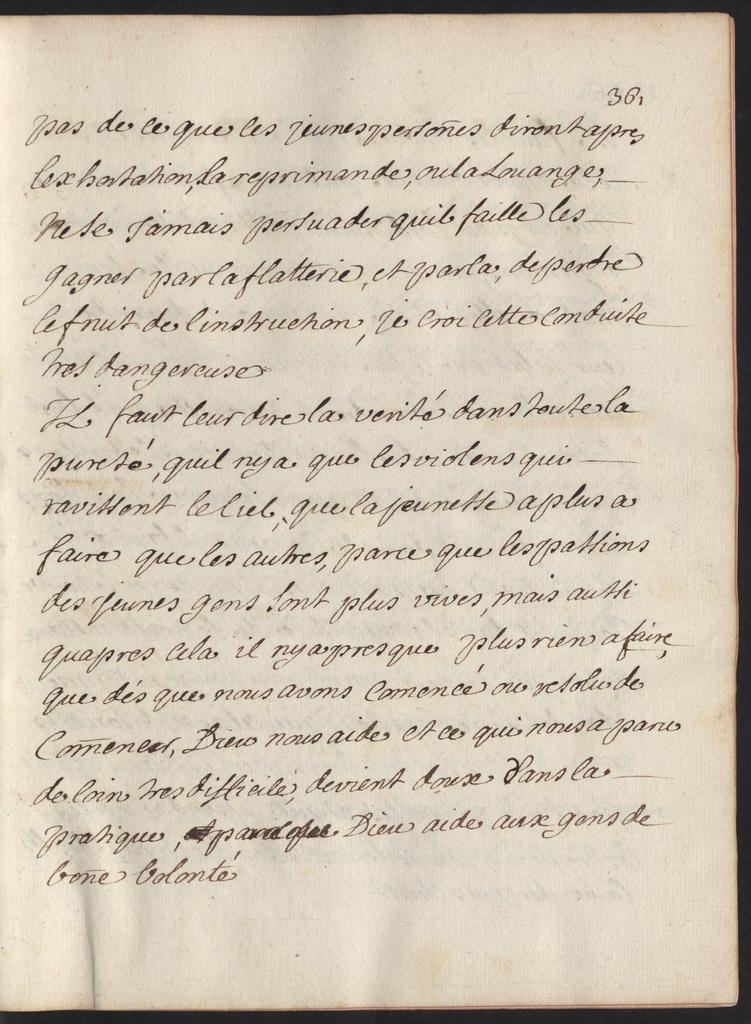 361
pas de ce que les jeunes persoñes diront apres
lexhortation, la reprimande, ou la Louange,
Ne se jamais persuader quil faille les
gagner par la flatterie, et par la, de perdre
le fruit de linstruction, je croi cette conduite
tres dangereuse
IL faut leur dire la verité dans toute la
pureté, quil ny a que les violens qui
ravissent le Ciel, que la jeunesse a plus a
faire que les autres, parce que les passions
des jeunes gens sont plus vives, mais aussi
quapres cela il ny a presque plus rien a faire,
que dés que nous avons comencé ou resolu de
Com̃encer, Dieu nous aide et ce qui nous a paru
de loin tres difficile, devient doux dans la
pratique, Dieu aide aux gens de
bon̄e volonté